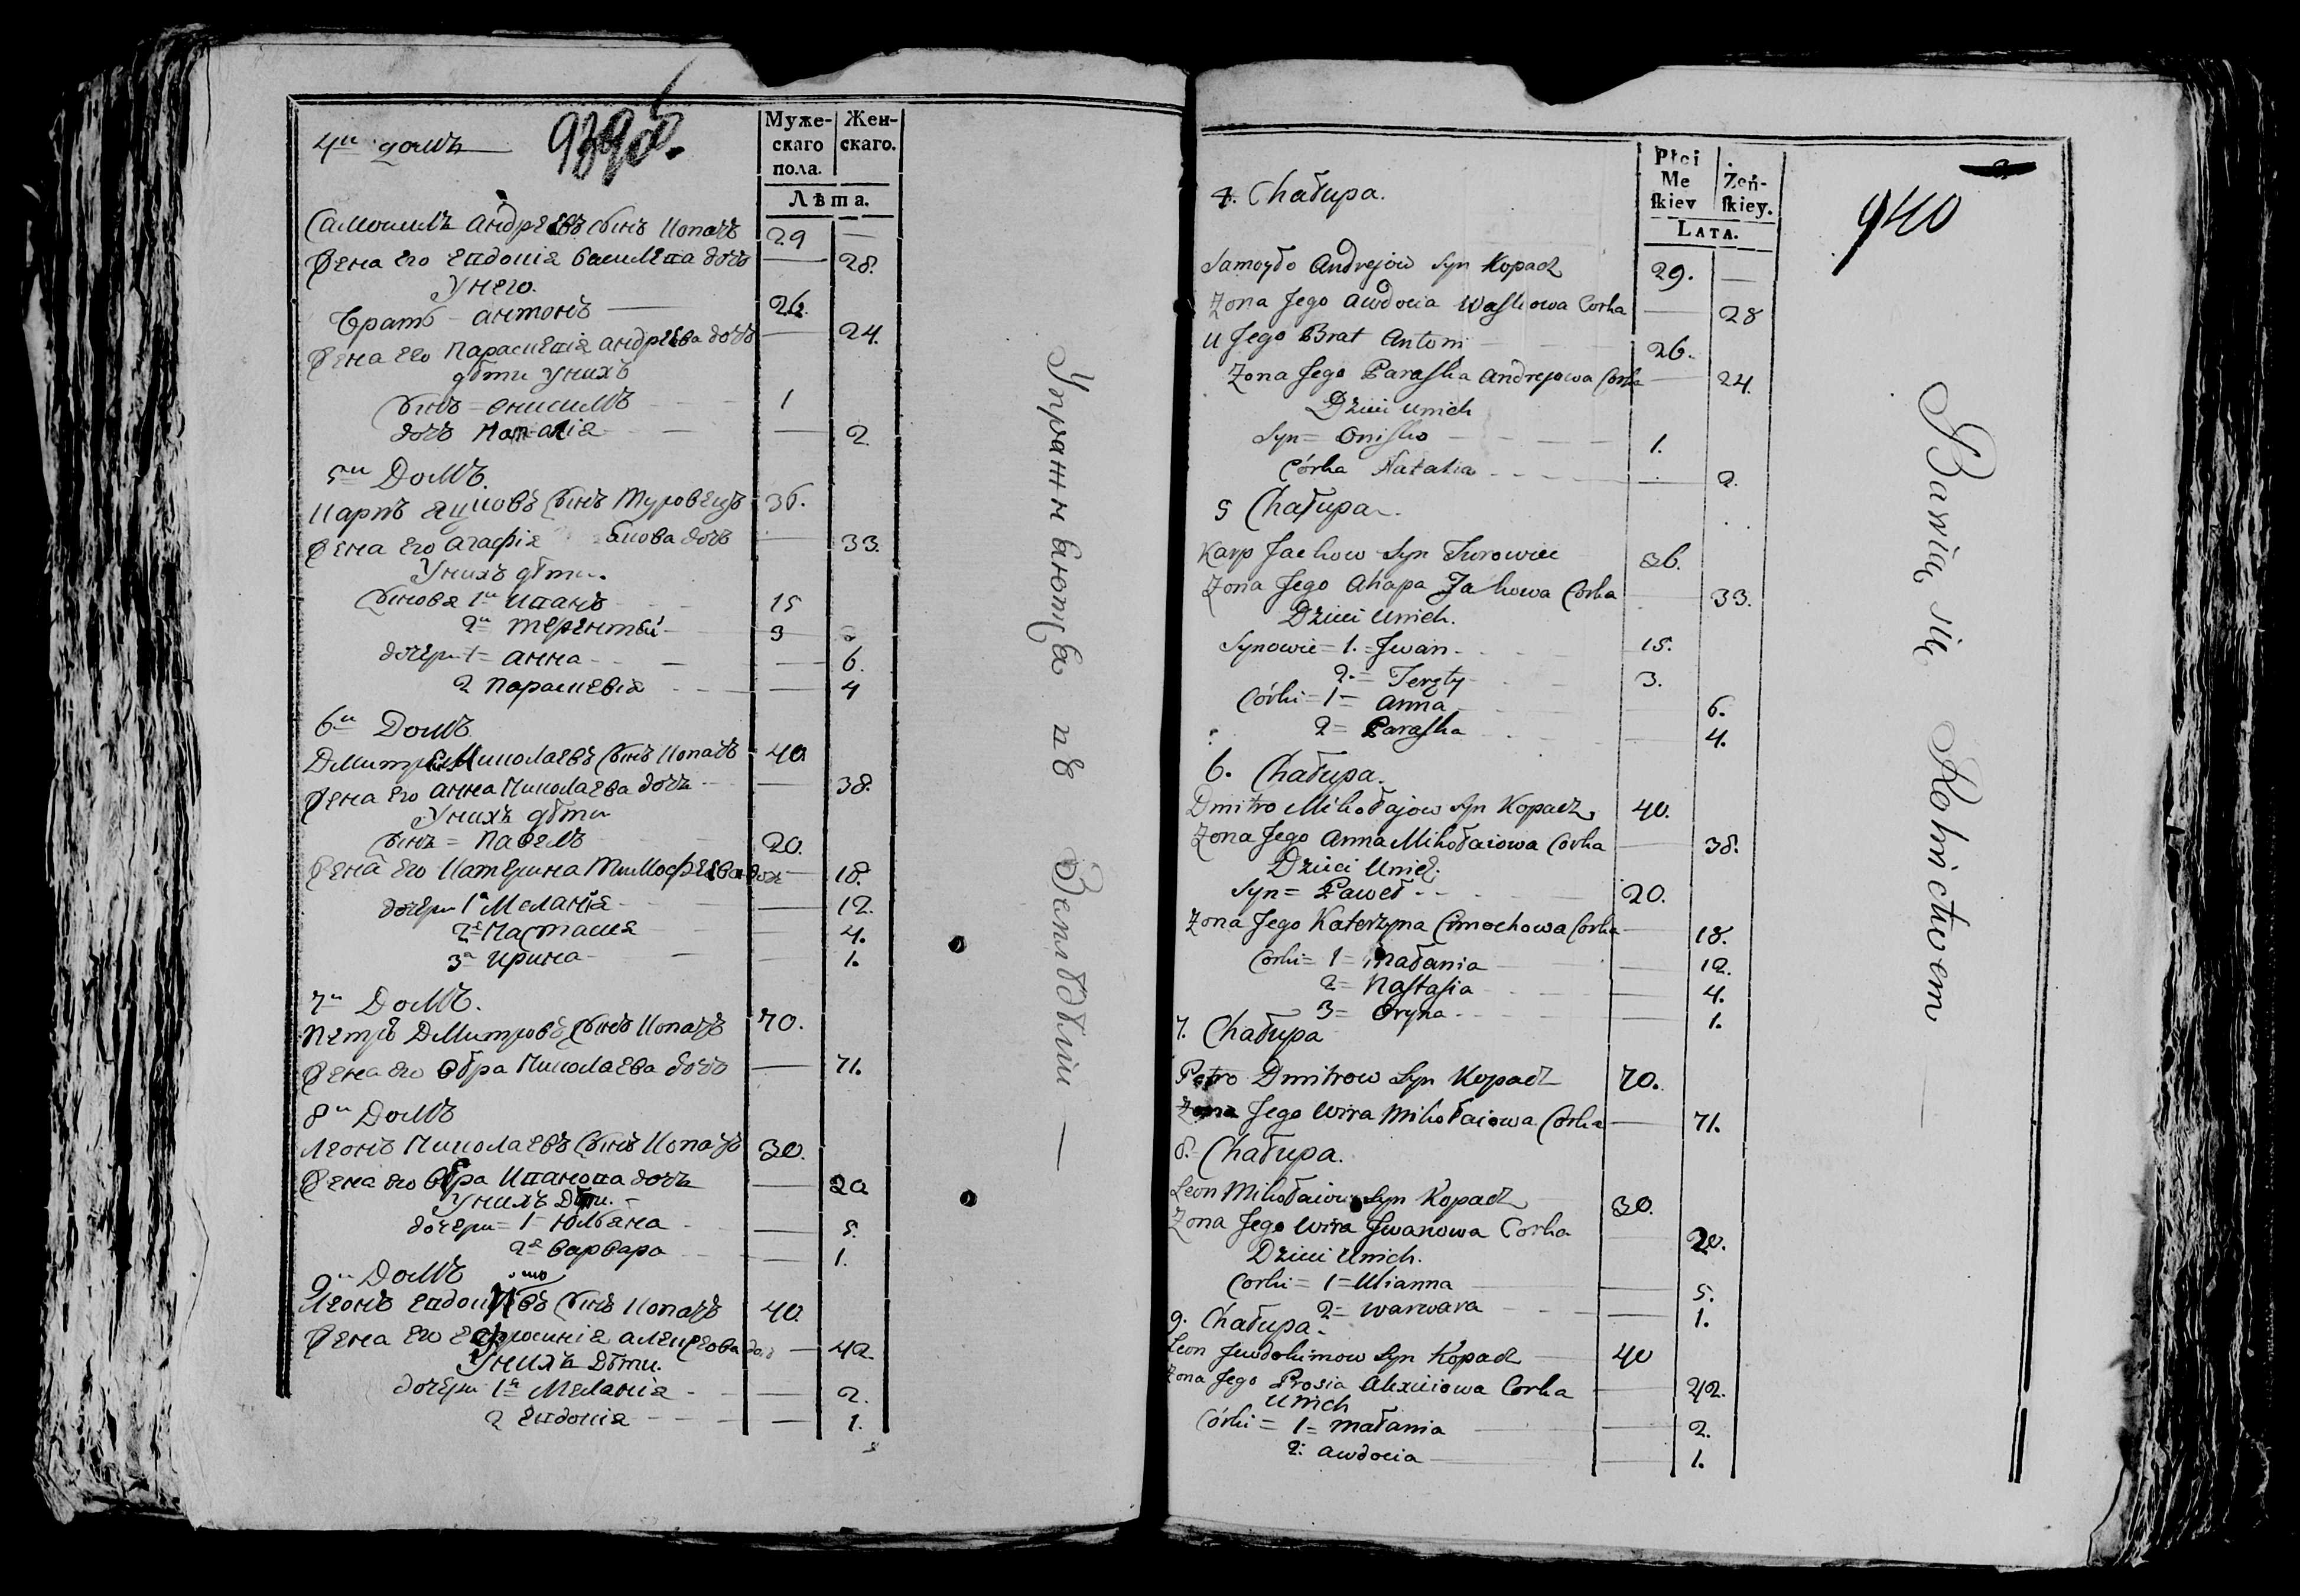 4й домъ
939об.
Муже-
скаго
пола.
Жен-
скаго.
Лѣта.
Самоилъ Андреевъ сынъ Копачъ 29 —
Жена его Евдокія Василева дочь — 28.
У него.
Братъ - Антонъ — 26.
Жена его Параскевія Андреева дочь — 24.
дѣти у нихъ
сынъ = Онисимъ 1
дочь Наталія — 2
5й Домъ.
Карпъ Яцковъ сынъ Туровецъ 36.
Жена его Агафія дочь — 33.
У нихъ дѣти.
сыновя 1й Иванъ 15
2й Терентѣй 3
дочери 1= Анна — 6.
2 Параскевія — 4
6й Домъ
Дмитрей Николаевъ сынъ Копачъ 40
Жена его Анна Николаева дочь — 38.
У нихъ дѣти
сынъ = Павелъ 20.
Жена его Катерина Тимофеева доч — 18.
дочери 1я Меланія — 12.
2я Настасия — 4.
3я Ирина — 1.
7й Домъ.
Петръ Дмитровъ сынъ Копачъ 70.
Жена его Вѣра Николаева дочь — 71.
8й Домъ
Леонъ Николаевъ сынъ Копачъ 30.
Жена его Вѣра Иванова дочь — 20
У нихъ Дѣти.
дочери = 1= Юлѣяна — 5.
2я Варвара — 1.
9й Домъ
Леонъ сынъ Копачъ 40.
Жена его Ефросинія Алексеова доч — 42.
У нихъ Дѣти.
дочери 1я Меланія — 2.
2 Евдокія — 1.
Упражняются въ Земледѣліи —
Płci
Me
ſkiey
Żeń-
ſkiey.
LATA.
940
4. Chałupa.
Samoyło Andrejow Syn Kopacz 29. —
Zona Jego Awdocia Waſkowa Corka — 28
U Jego Brat Antoni 26.
Zona Jego Paraſka Andrejowa Corka — 24.
Dzieci u nich
Syn = Oniſko 1.
Córka Natalia — 2.
5 Chałupa.
Karp Jackow Syn Turowiec 36.
Zona Jego Ahapa Corka — 33.
Dzieci u nich.
Synowie = 1. = Jwan 15.
2. = Terety 3.
Córki = 1 = Anna — 6.
2 = Paraſka — 4.
6. Chałupa.
Dmitro Mikołajow Syn Kopacz 40.
Zona Jego Anna Mikołaiowa Corka — 38.
Dzieci u nich.
Syn = Paweł 20.
Zona Jego Katerzyna Cimochowa Corka — 18.
Corki = 1 = Małania — 12.
2 = Naſtaſia — 4.
3 = Oryna — 1.
7. Chałupa
Petro Dmitrow Syn Kopacz 70.
Zona Jego Wira Mikołaiowa Corka — 71.
8. Chałupa.
Leon Mikołaiow Syn Kopacz 30.
Zona Jego Wira Jwanowa Corka 20.
Dzieci u nich.
Corki = 1 = Ulianna — 5.
2 = Warwara — 1.
9. Chałupa.
Leon Jewdokimow Syn Kopacz 40
Zona Jego Prosia Alexiejowa Corka — 42.
U nich
Córki = 1 = Małania — 2.
2. Awdocia — 1.
Bawią się Rolnictwem —